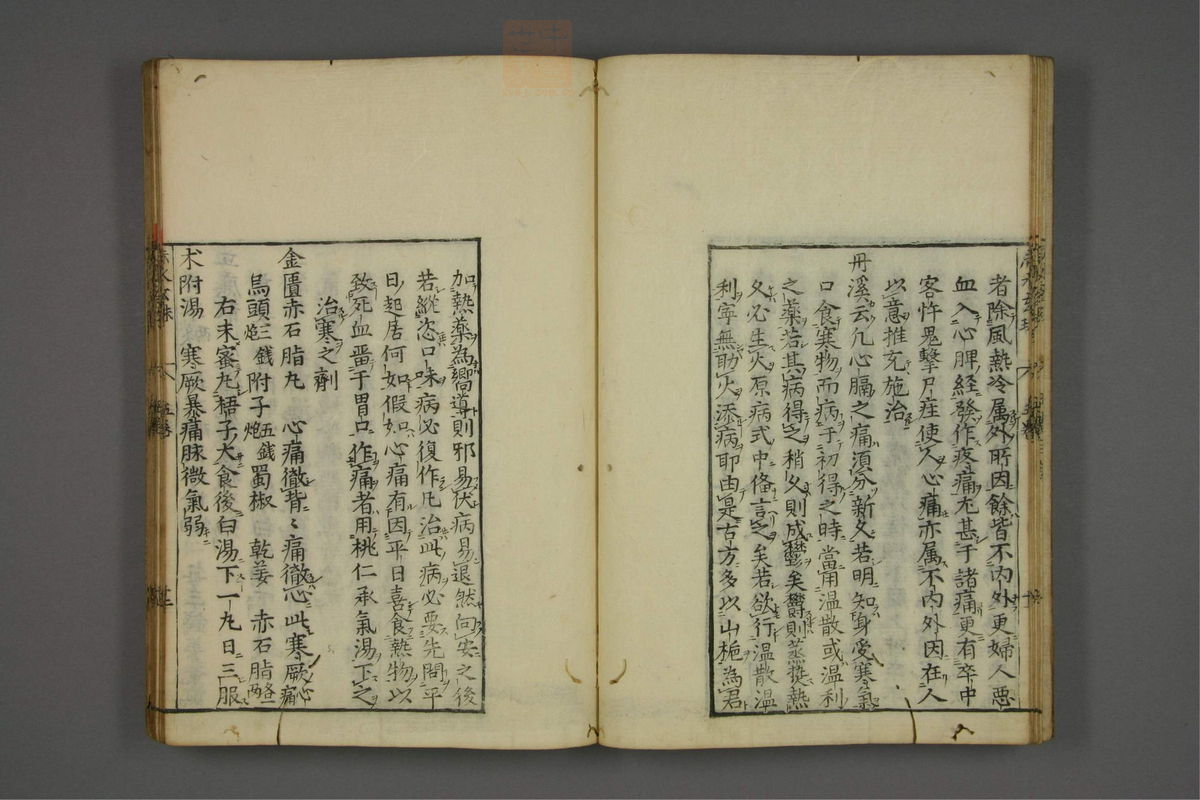 者除風熱冷属外所因餘皆不内外更婦人悪
血入心脾経發作疼痛尤甚于諸痛更有卒中
客忤鬼擊尸疰使人心痛亦属不内外因在人
以意推充施治
丹溪云凢心膈之痛須分新久若明知身受寒氣
口食寒物而病于初得之時當用温散或温利
之薬若其病得之稍久則成欝矣欝則蒸𤍠熱
久必生火原病式中俻言之矣若欲行温散温
利寧無助火添病耶由是古方多以山梔為君
加熱薬為嚮導則邪易伏病易退然向安之後
若縦恣口味病必復作凢治此病必要先問平
日起居何如假如心痛有因平日喜食熱物以
致死血畱于胃口作痛者用桃仁承氣湯下之
治寒之劑
金匱赤石脂丸 心痛徹背〻痛徹心此寒厥心痛
烏頭炮三錢 附子炮五錢 蜀椒 乾姜 赤石脂各一両
右末蜜丸梧子大食後白湯下一丸日三服
朮附湯 寒厥暴痛脉微氣弱